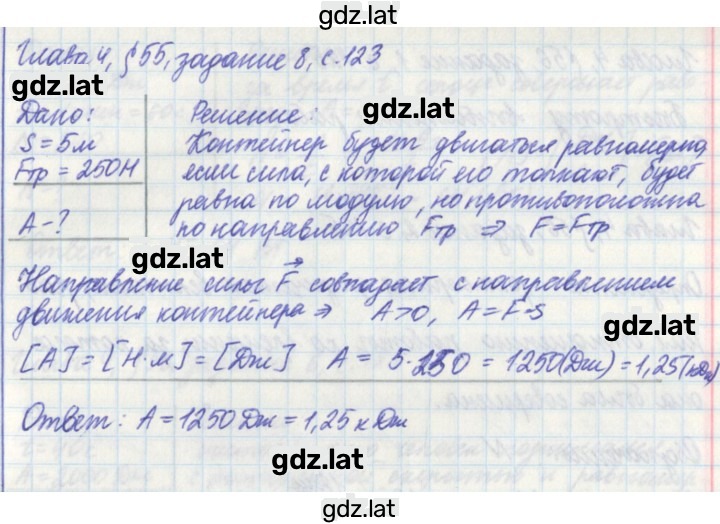 gdz.lat
Глава 4, § 55, задание 8, с. 123
gdz.lat
Дано: Решение:
S = 5м Контейнер будет двигаться равномерно,
Fтр = 250Н если сила, с которой его толкают, будет
равна по модулю, но противоположна
A - ? по направлению Fтр ⇒ F = Fтр
gdz.lat
Направление силы F⃗ совпадает с направлением
движения контейнера ⇒ A>0, A = F·S
gdz.lat
[A] = [Н·м] = [Дж] A = 5·250 = 1250(Дж) = 1,25(кДж)
Ответ: A = 1250 Дж = 1,25 кДж
gdz.lat
gdz.lat